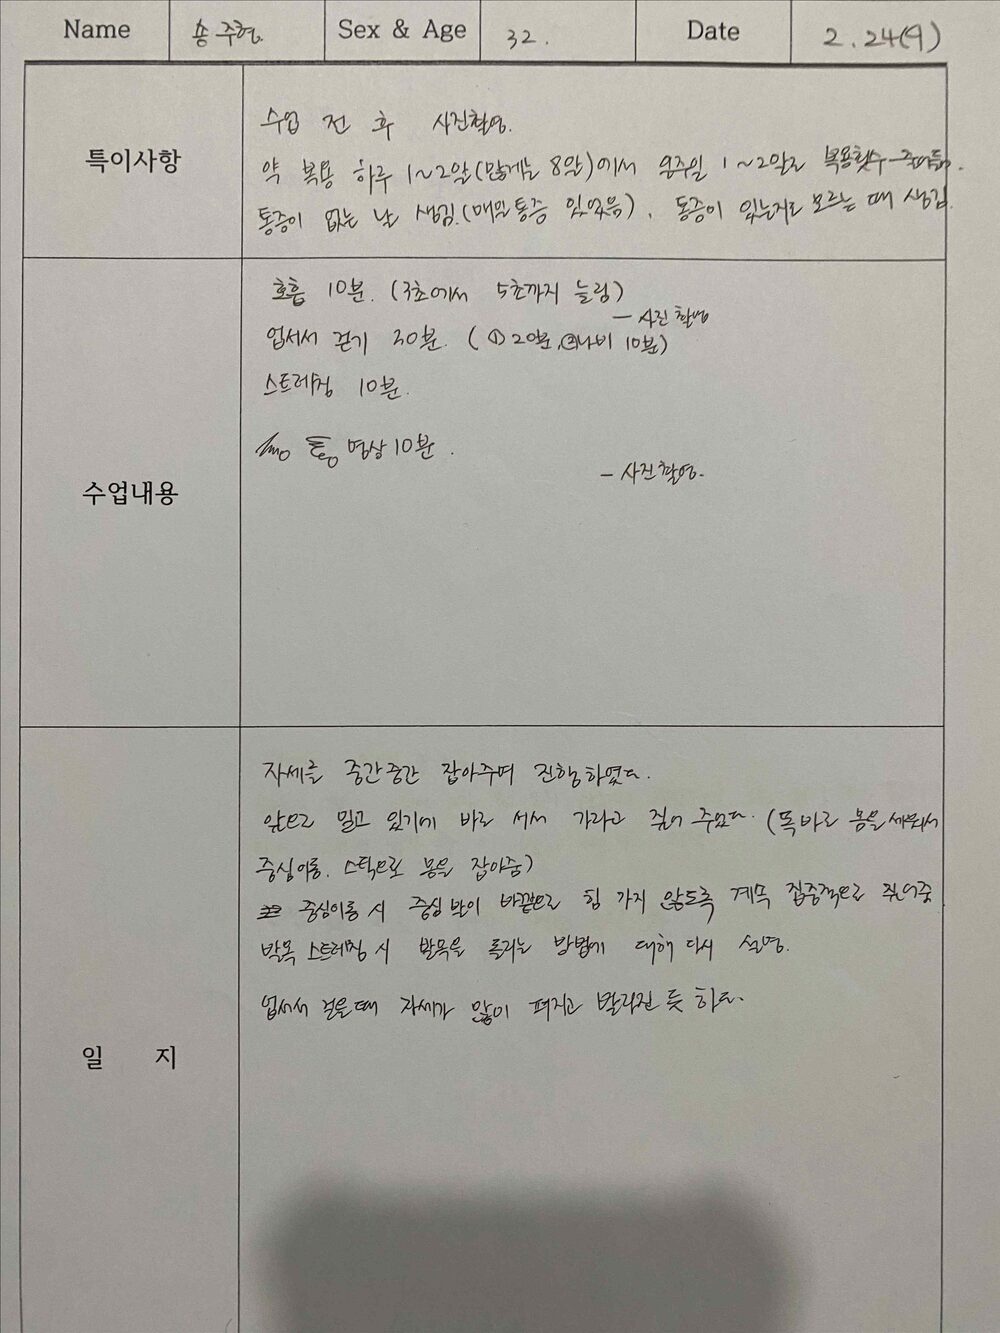 Name 송주현 Sex & Age 32. Date 2.24(9)
특이사항
수업 전 후 사진촬영.
약 복용 하루 1~2알(많게는 8알)에서 일주일 1~2알로 복용횟수 줄어듦.
통증이 없는 날 생김.(매일 통증 있었음), 통증이 있는지도 모르는 때 생김.
수업내용
호흡 10분. (3초에서 5초까지 늘림)
- 사진 촬영
업서서 걷기 30분. (① 20분, ②나비 10분)
스트레칭 10분.
영상 10분.
- 사진촬영.
일 지
자세를 중간중간 잡아주며 진행하였다.
앞으로 밀고 있기에 바로 서서 가라고 짚어 주었다. (똑바로 몸을 세워서
중심이동. 스틱으로 몸을 잡아줌)
중심이동 시 중심 발이 바깥으로 힘 가지 않도록 계속 집중적으로 짚어줌
발목 스트레칭 시 발목을 돌리는 방법에 대해 다시 설명.
업서서 걸을때 자세가 많이 펴지고 빨라진 듯 하다.